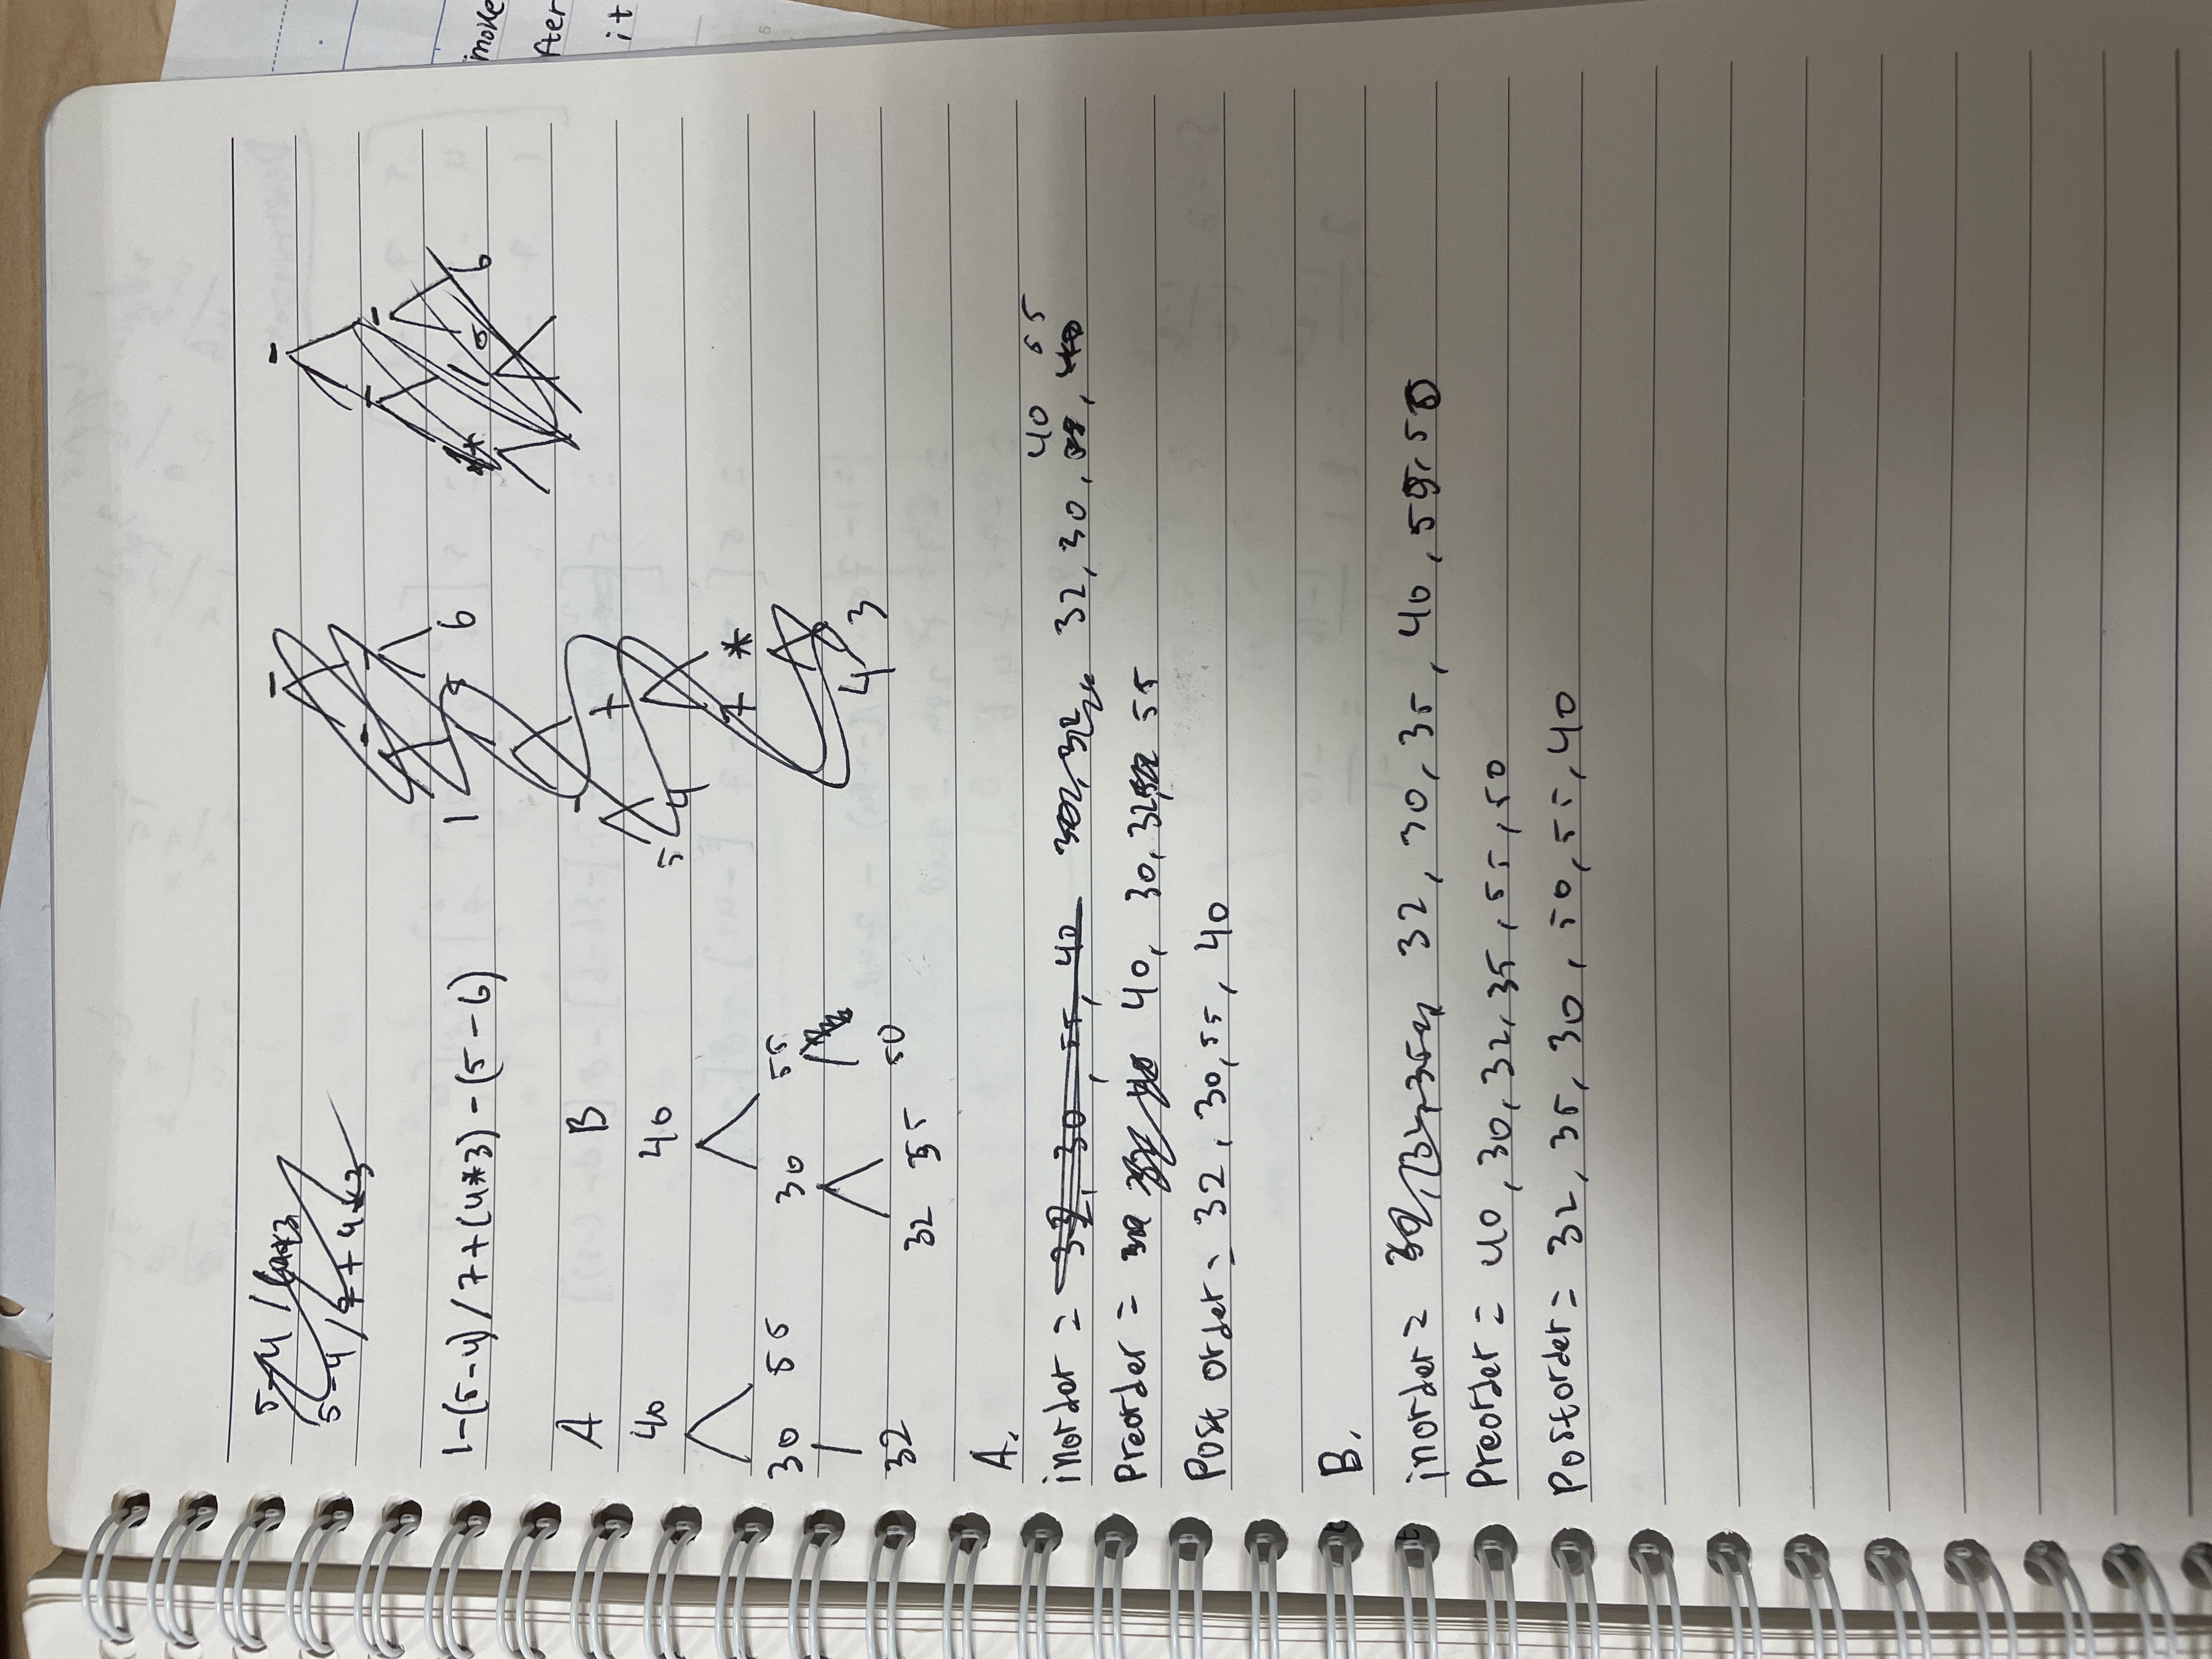 5-4 / 
5-4/7+4*3
1-(5-4)/7+(4*3)-(5-6)
-
- -
1 6
-
5 4 +
7 *
4 3
-
- -
* / 5 6
A B
40 40
30 55 30 55
32 32 35 50
A.
inorder = 32, 30, 55, 40 32, 30, 40 55
Preorder = 40, 30, 32, 55
Post order = 32, 30, 55, 40
B.
inorder = 32, 30, 35, 40, 55, 50
Preorder = 40, 30, 32, 35, 55, 50
Postorder = 32, 35, 30, 50, 55, 40
more
fter
it